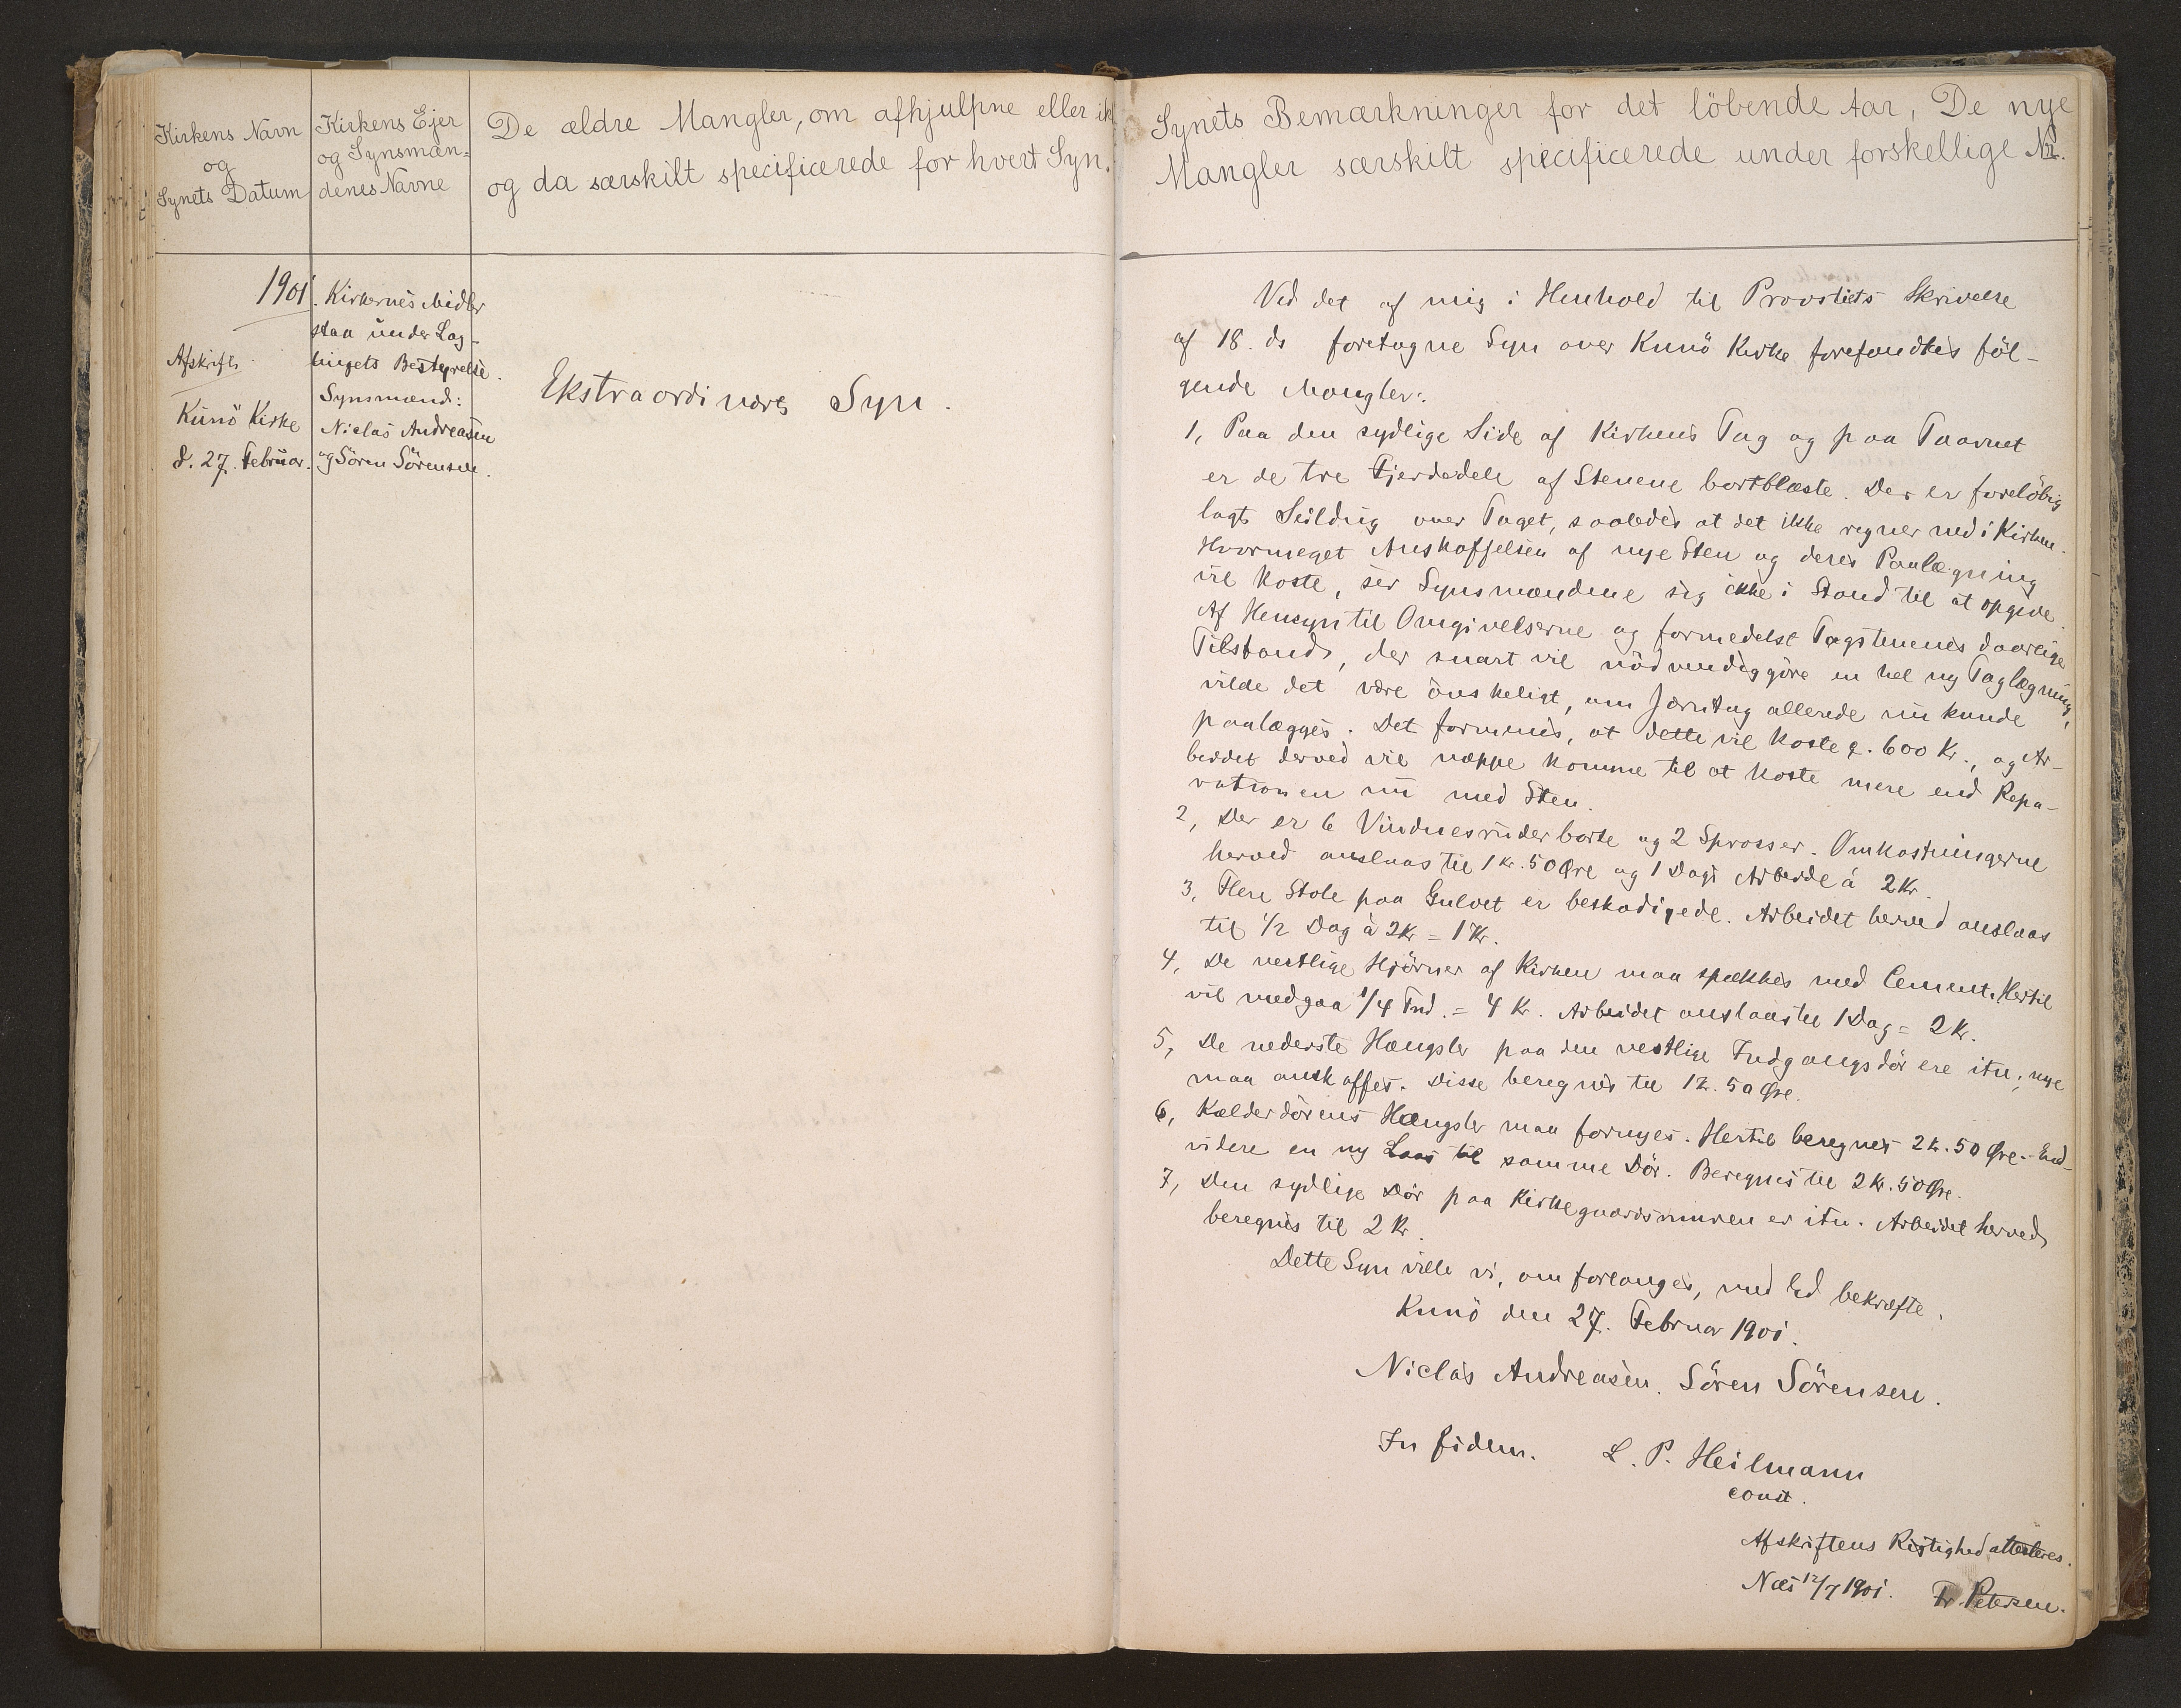 Kirkens Navn
og
Synets Datum
Kirkens Ejer
og Synsmæn-
denes Navne
De ældre Mangler, om afhjulpne eller ik
og da særskilt specificerede for hvert Syn.
1901.
Afskrift.
Kunö Kirke
d. 27. Februar.
Kirkernes Midler
staa under Lag-
tingets Bestyrelse.
Synsmænd:
Niclas Andreasen
og Sören Sörensen.
Ekstraordinært Syn.
Synets Bemærkninger for det löbende Aar, De nye
Mangler særskilt specificerede under forskellige Nr.
Ved det af mig i Henhold til Provstiets Skrivelse
af 18. ds foretagne Syn over Kunö Kirke forefandtes föl-
gende Mangler:
1, Paa den sydlige Side af Kirkens Tag og paa Taarnet
er de tre Fjerdedele af Stenene bortblæste. Der er forelöbig
lagt Seildug over Taget, saaledes at det ikke regner ned i Kirken.
Hvormeget Anskaffelsen af nye Sten og deres Paalægning
vil koste, ser Synsmændene sig ikke i Stand til at opgive.
Af Hensyn til Omgivelserne og formedelst Tagstenenes daarlige
Tilstand, der snart vil nödvendiggöre en hel ny Taglægning,
vilde det være önskeligt, om Jærntag allerede nu kunde
paalægges. Det formenes, at dette vil koste c. 600 Kr., og Ar-
beidet derved vil næppe komme til at koste mere end Repa-
rationen nu med Sten.
2, Der er 6 Vinduesruder borte og 2 Sprosser. Omkostningerne
herved anslaas til 1 Kr. 50 Øre og 1 Dags Arbeide à 2 Kr.
3, Flere Stole paa Gulvet er beskadigede. Arbeidet herved anslaas
til 1/2 Dag à 2 Kr = 1 Kr.
4, De vestlige Hjörner af Kirken maa spækkes med Cement. Hertil
vil medgaa 1/4 Tnd. = 4 Kr. Arbeidet anslaas til 1 Dag = 2 Kr.
5, De nederste Hængsler paa den vestlige Indgangsdör ere itu; nye
maa anskaffes. Disse beregnes til 1 Kr. 50 Øre.
6, Kælderdörens Hængsler maa fornyes. Hertil beregnes 2 Kr. 50 Øre. End-
videre en ny Laas til samme Dör. Beregnes til 2 Kr. 50 Øre.
7, Den sydlige Dör paa Kirkegaardsmuren er itu. Arbeidet herved
beregnes til 2 Kr.
Dette Syn ville vi, om forlanges, med Ed bekræfte.
Kunö den 27. Februar 1901.
Niclas Andreasen. Sören Sörensen.
In fidem. L. P. Heilmann
const.
Afskriftens Rigtighed attesteres.
Næs 12/7 1901. Fr. Petersen.